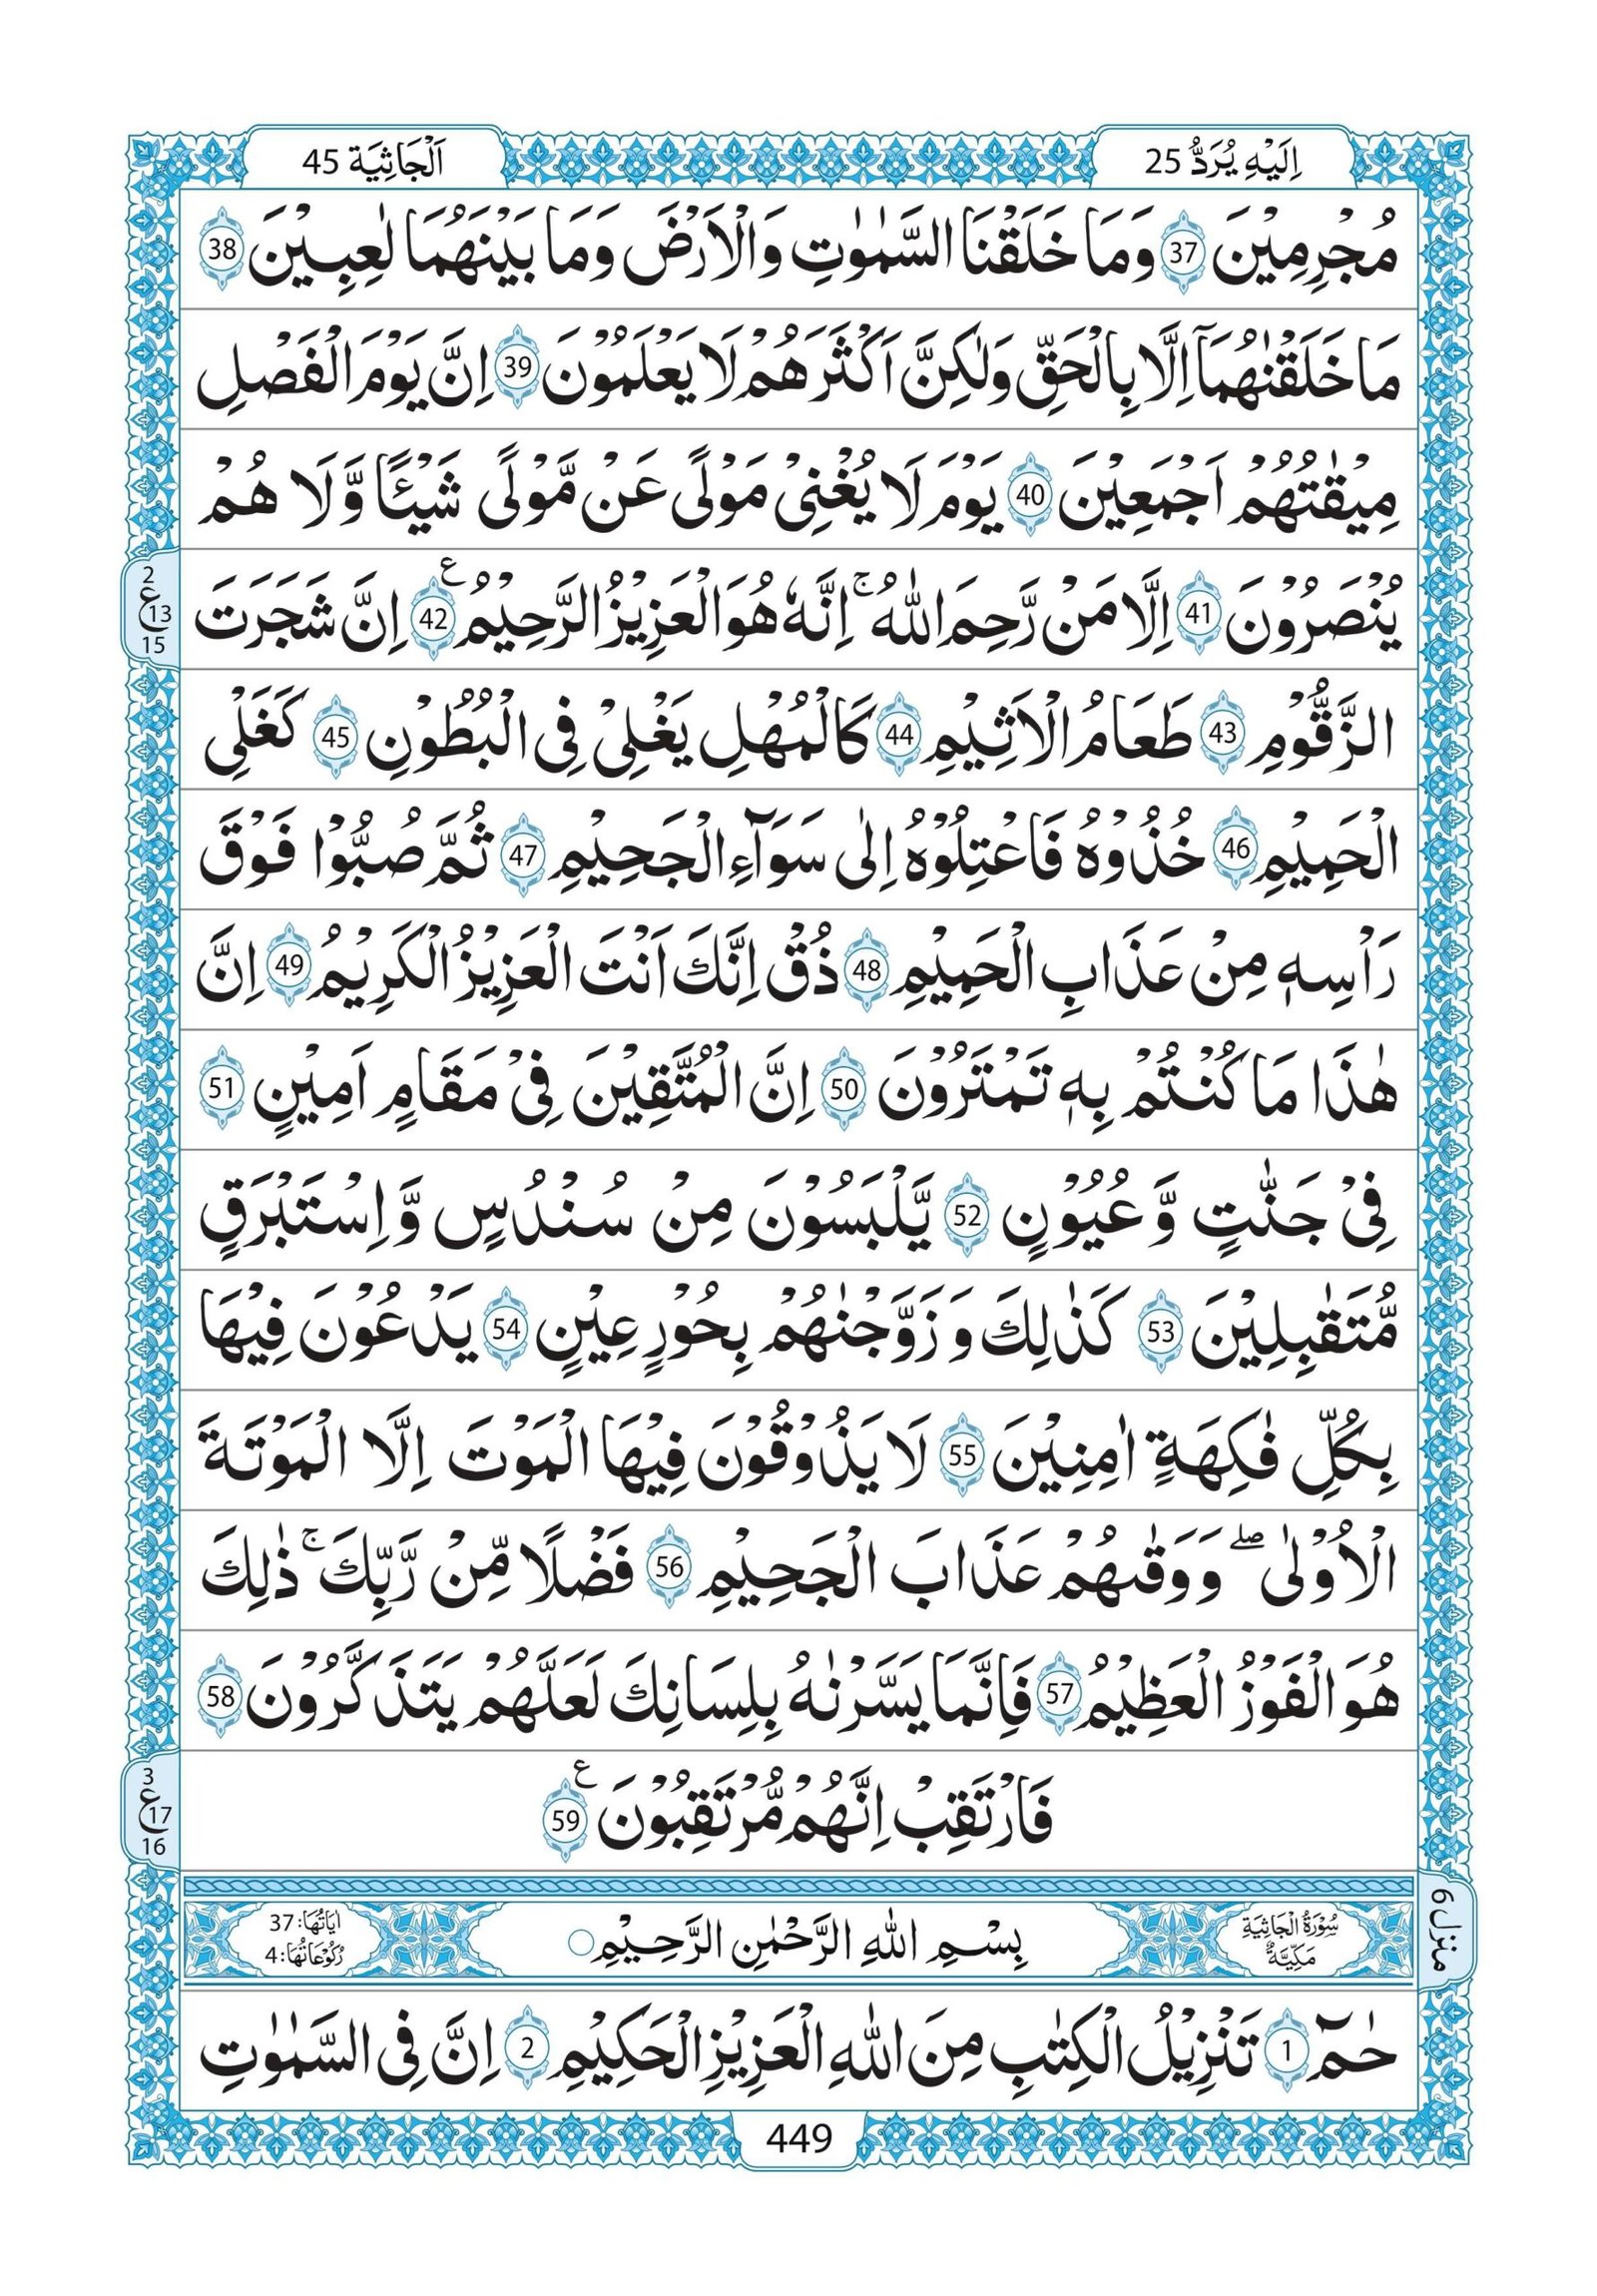 اِلَيْهِ يُرَدُّ 25
اَلْجَاثِيَة 45
مُجْرِمِيْنَ 37 وَمَا خَلَقْنَا السَّمٰوٰتِ وَالْاَرْضَ وَمَا بَيْنَهُمَا لٰعِبِيْنَ 38
مَا خَلَقْنٰهُمَاۤ اِلَّا بِالْحَقِّ وَلٰكِنَّ اَكْثَرَهُمْ لَا يَعْلَمُوْنَ 39 اِنَّ يَوْمَ الْفَصْلِ
مِيْقٰتُهُمْ اَجْمَعِيْنَ 40 يَوْمَ لَا يُغْنِيْ مَوْلًى عَنْ مَّوْلًى شَيْـًٔا وَّلَا هُمْ
يُنْصَرُوْنَ 41 اِلَّا مَنْ رَّحِمَ اللّٰهُ ۚ اِنَّهٗ هُوَ الْعَزِيْزُ الرَّحِيْمُ 42 ع اِنَّ شَجَرَتَ
2
ع 13
15
الزَّقُّوْمِ 43 طَعَامُ الْاَثِيْمِ 44 كَالْمُهْلِ يَغْلِيْ فِي الْبُطُوْنِ 45 كَغَلْيِ
الْحَمِيْمِ 46 خُذُوْهُ فَاعْتِلُوْهُ اِلٰى سَوَآءِ الْجَحِيْمِ 47 ثُمَّ صُبُّوْا فَوْقَ
رَاْسِهٖ مِنْ عَذَابِ الْحَمِيْمِ 48 ذُقْ اِنَّكَ اَنْتَ الْعَزِيْزُ الْكَرِيْمُ 49 اِنَّ
هٰذَا مَا كُنْتُمْ بِهٖ تَمْتَرُوْنَ 50 اِنَّ الْمُتَّقِيْنَ فِيْ مَقَامٍ اَمِيْنٍ 51
فِيْ جَنّٰتٍ وَّعُيُوْنٍ 52 يَّلْبَسُوْنَ مِنْ سُنْدُسٍ وَّاِسْتَبْرَقٍ
مُّتَقٰبِلِيْنَ 53 كَذٰلِكَ وَزَوَّجْنٰهُمْ بِحُوْرٍ عِيْنٍ 54 يَدْعُوْنَ فِيْهَا
بِكُلِّ فٰكِهَةٍ اٰمِنِيْنَ 55 لَا يَذُوْقُوْنَ فِيْهَا الْمَوْتَ اِلَّا الْمَوْتَةَ
الْاُوْلٰى ۖ وَوَقٰىهُمْ عَذَابَ الْجَحِيْمِ 56 فَضْلًا مِّنْ رَّبِّكَ ۚ ذٰلِكَ
هُوَ الْفَوْزُ الْعَظِيْمُ 57 فَاِنَّمَا يَسَّرْنٰهُ بِلِسَانِكَ لَعَلَّهُمْ يَتَذَكَّرُوْنَ 58
فَارْتَقِبْ اِنَّهُمْ مُّرْتَقِبُوْنَ 59 ع
3
ع 17
16
سُوْرَةُ الْجَاثِيَةِ
مَكِّيَّةٌ
بِسْمِ اللّٰهِ الرَّحْمٰنِ الرَّحِيْمِ
اٰيَاتُهَا: 37
رُكُوْعَاتُهَا: 4
منزل 6
حٰمٓ 1 تَنْزِيْلُ الْكِتٰبِ مِنَ اللّٰهِ الْعَزِيْزِ الْحَكِيْمِ 2 اِنَّ فِي السَّمٰوٰتِ
449